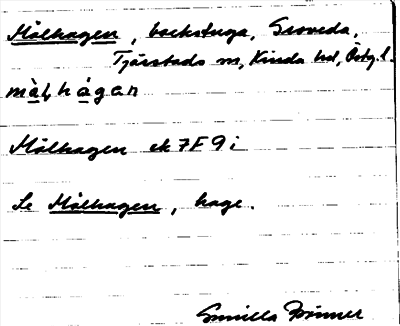 Målhagen, backstuga, Groveda,
Tjärstads sn, Kinda hd, Östg. l.
Målhagen ek 7F 9i
Se Målhagen, hage.
Gunilla